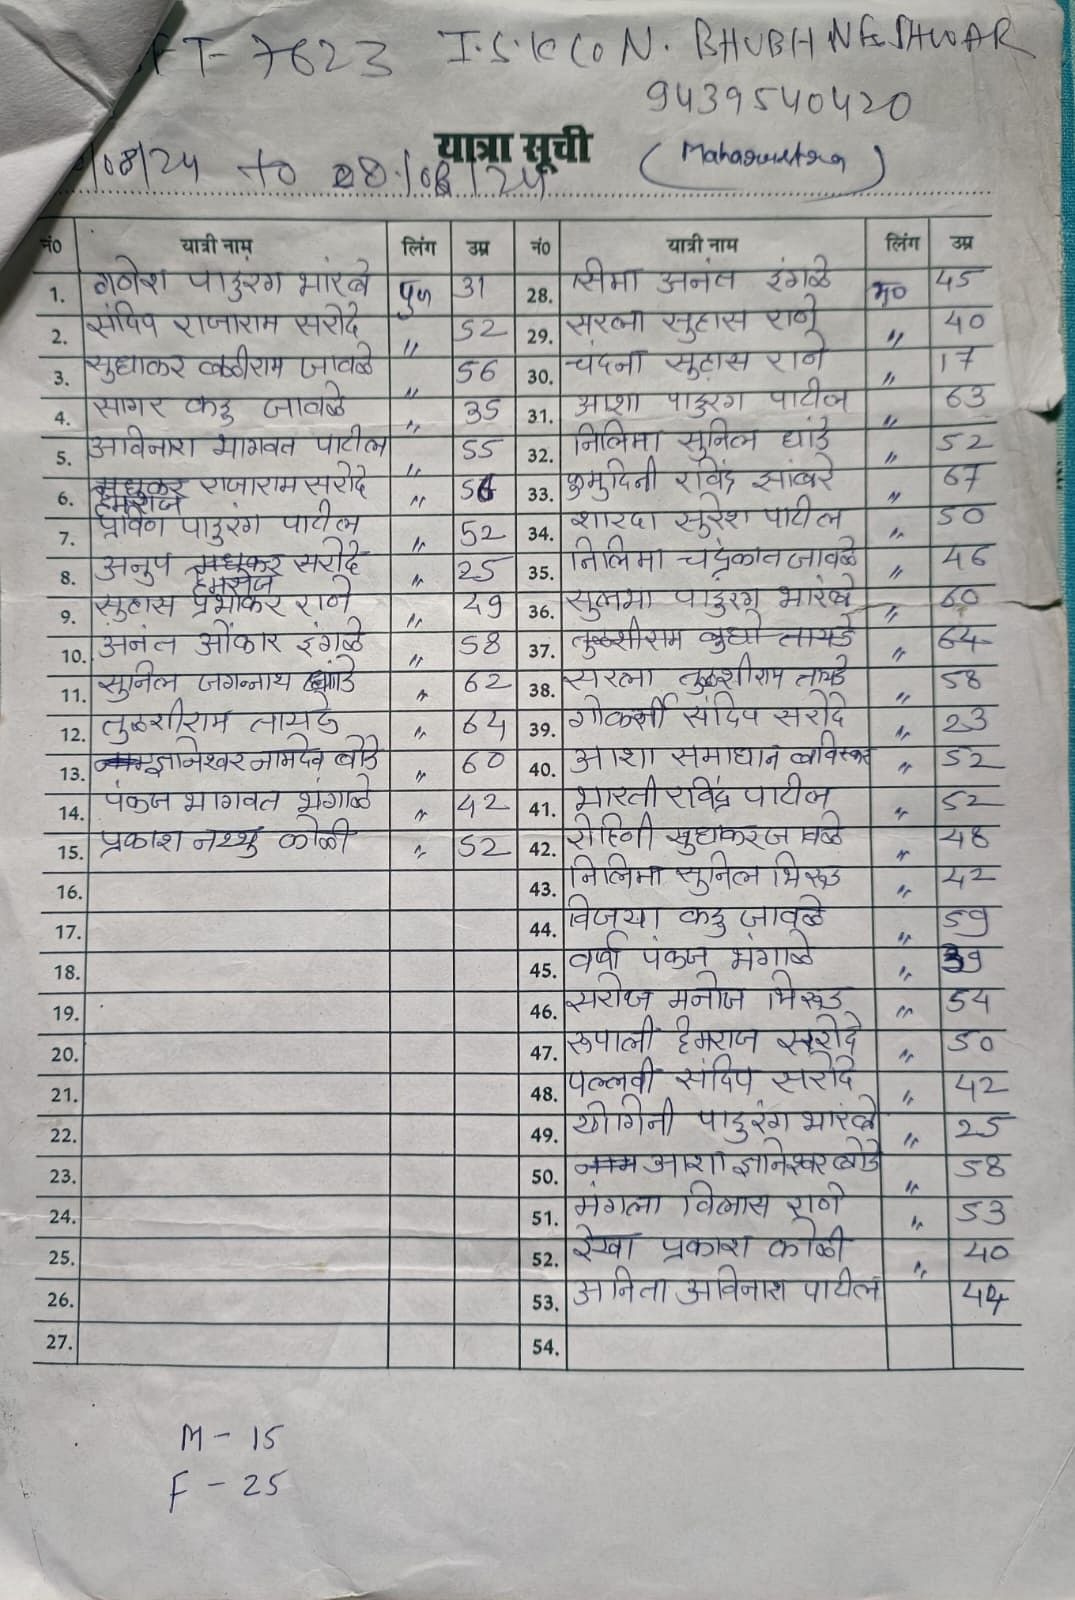 FT-7623 I.S.KCON. BHUBHNESHWAR
9439540420
यात्रा सूची (Maharashtra)
/08/24 to 08/08/24
नं० यात्री नाम लिंग उम्र नं० यात्री नाम लिंग उम्र
1. गणेश पाडुंरंग भारंबे पु० 31 28. सिमा अनंत इंगळे म० 45
2. संदिप राजाराम सरोदे " 52 29. सरला सुहास राणे " 40
3. सुधाकर बळीराम जावळे " 56 30. चंदना सुहास राणे " 17
4. सागर कडु जावळे " 35 31. आशा पाडुरंग पाटील " 63
5. अविनाश भागवत पाटील " 55 32. निलिमा सुनिल धांडे " 52
6. हेमराज राजाराम सरोदे " 56 33. कुमुदिनी रविंद्र झांबरे " 67
7. प्रविण पाडुरंग पाटील " 52 34. शारदा सुरेश पाटील " 50
8. अनुप हेमराज सरोदे " 25 35. निलिमा चंद्रकांत जावळे " 46
9. सुहास प्रभाकर राणे " 49 36. सुलभा पाडुंरंग भारंबे " 60
10. अनंत ओंकार इंगळे " 58 37. तुळशीराम बुधो तायडे " 64
11. सुनिल जगन्नाथ धांडे " 62 38. सरला तुळशीराम तायडे " 58
12. तुळशीराम तायडे " 64 39. संदिप सरोदे " 23
13. ज्ञानेश्वर नामदेव बोंडे " 60 40. आशा समाधान बाविस्कर " 52
14. पंकज भागवत भंगाळे " 42 41. भारती रविंद्र पाटील " 52
15. प्रकाश नथ्थु कोळी " 52 42. रोहिणी सुधाकर जावळे " 48
16. 43. निलिमा सुनिल भिरुड " 42
17. 44. विजया कडु जावळे " 59
18. 45. वर्षा पंकज भंगाळे " 39
19. 46. सरोज मनोज भिरुड " 54
20. 47. रुपाली हेमराज सरोदे " 50
21. 48. पल्लवी संदिप सरोदे " 42
22. 49. योगिनी पाडुरंग भारंबे " 25
23. 50. आशा ज्ञानेश्वर बोंडे " 58
24. 51. मंगला विलास राणे " 53
25. 52. रेखा प्रकाश कोळी " 40
26. 53. अनिता अविनाश पाटील 44
27. 54.
M - 15
F - 25